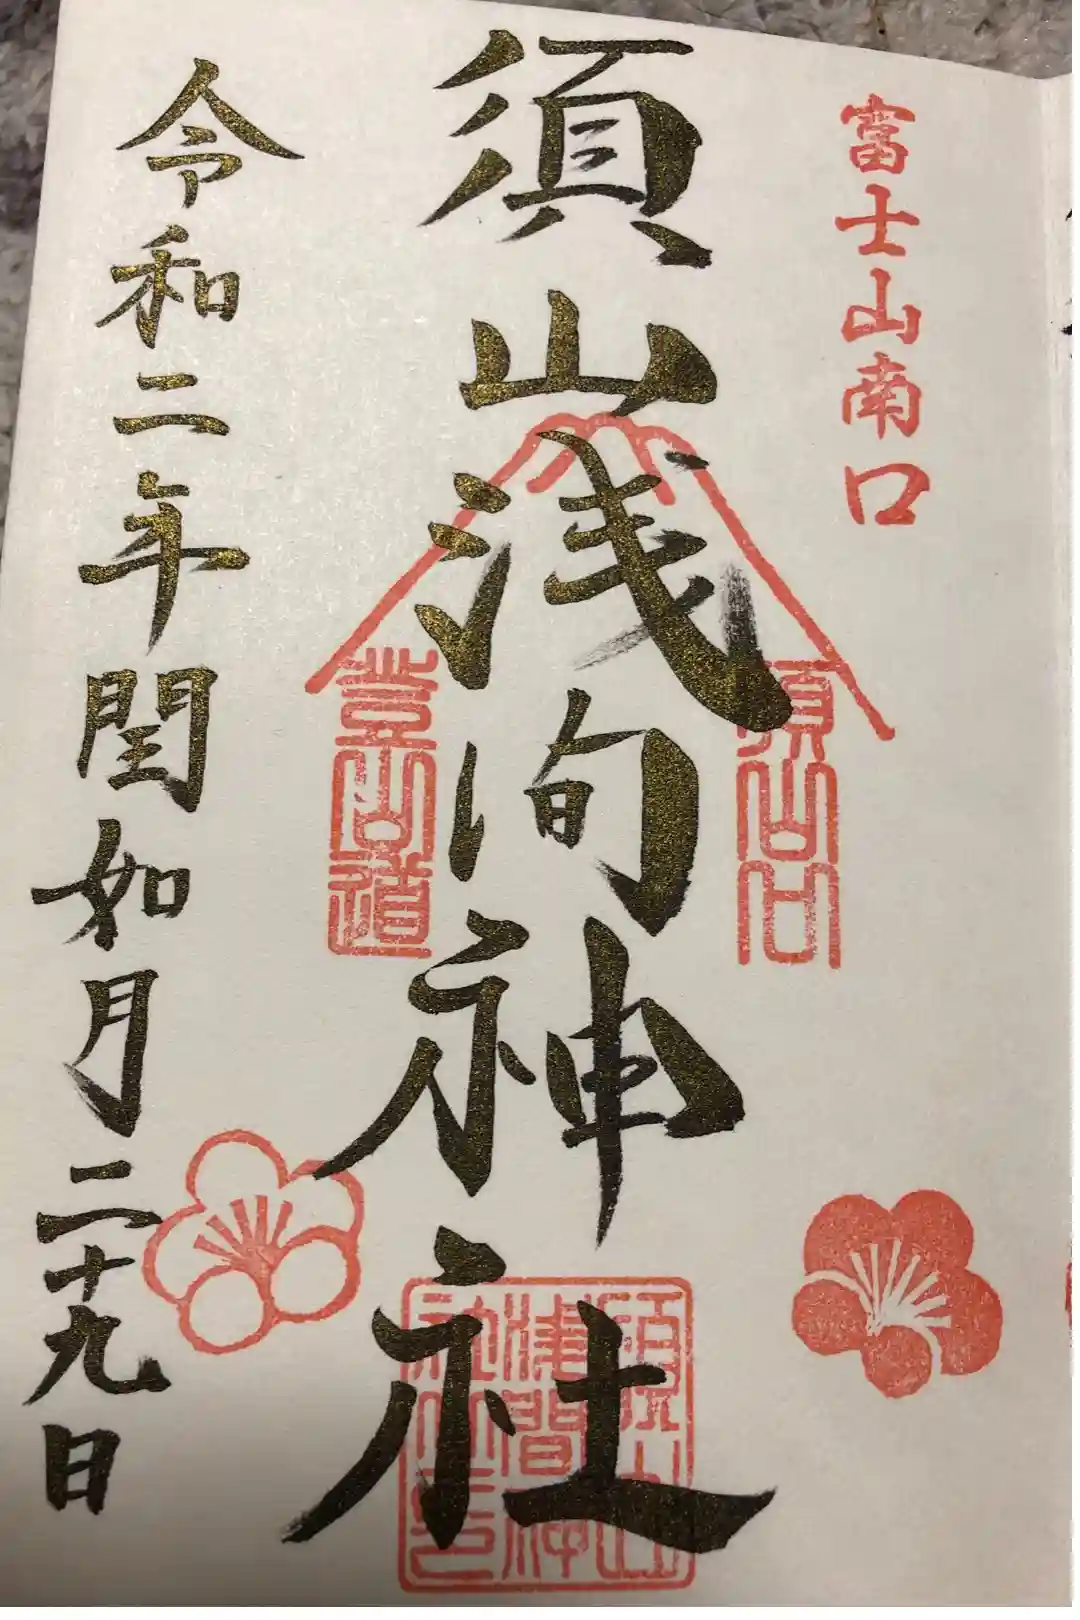 富士山南口
須山浅间神社
須山口
登山道
須山
浅間神
社之印
令和二年閏如月二十九日